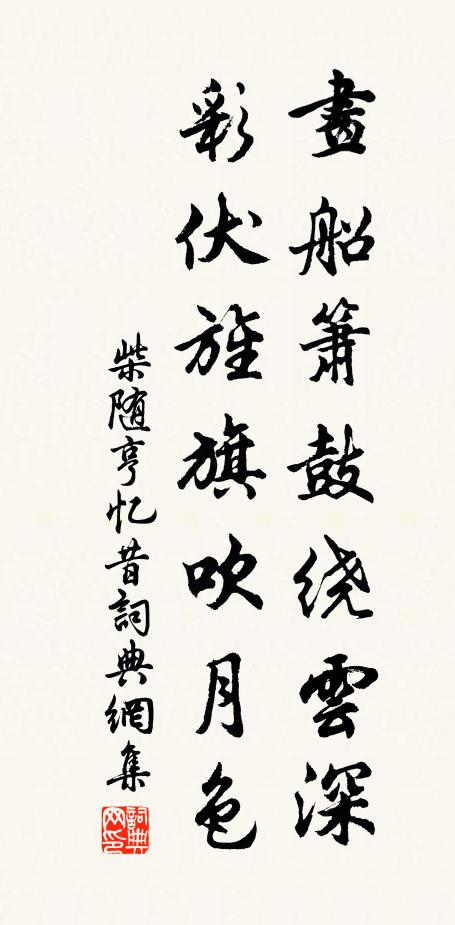 畫船簫鼓绕雲深
彩伏旌旗吹月色
柴随亨忆昔詞典網集
詞典
网印